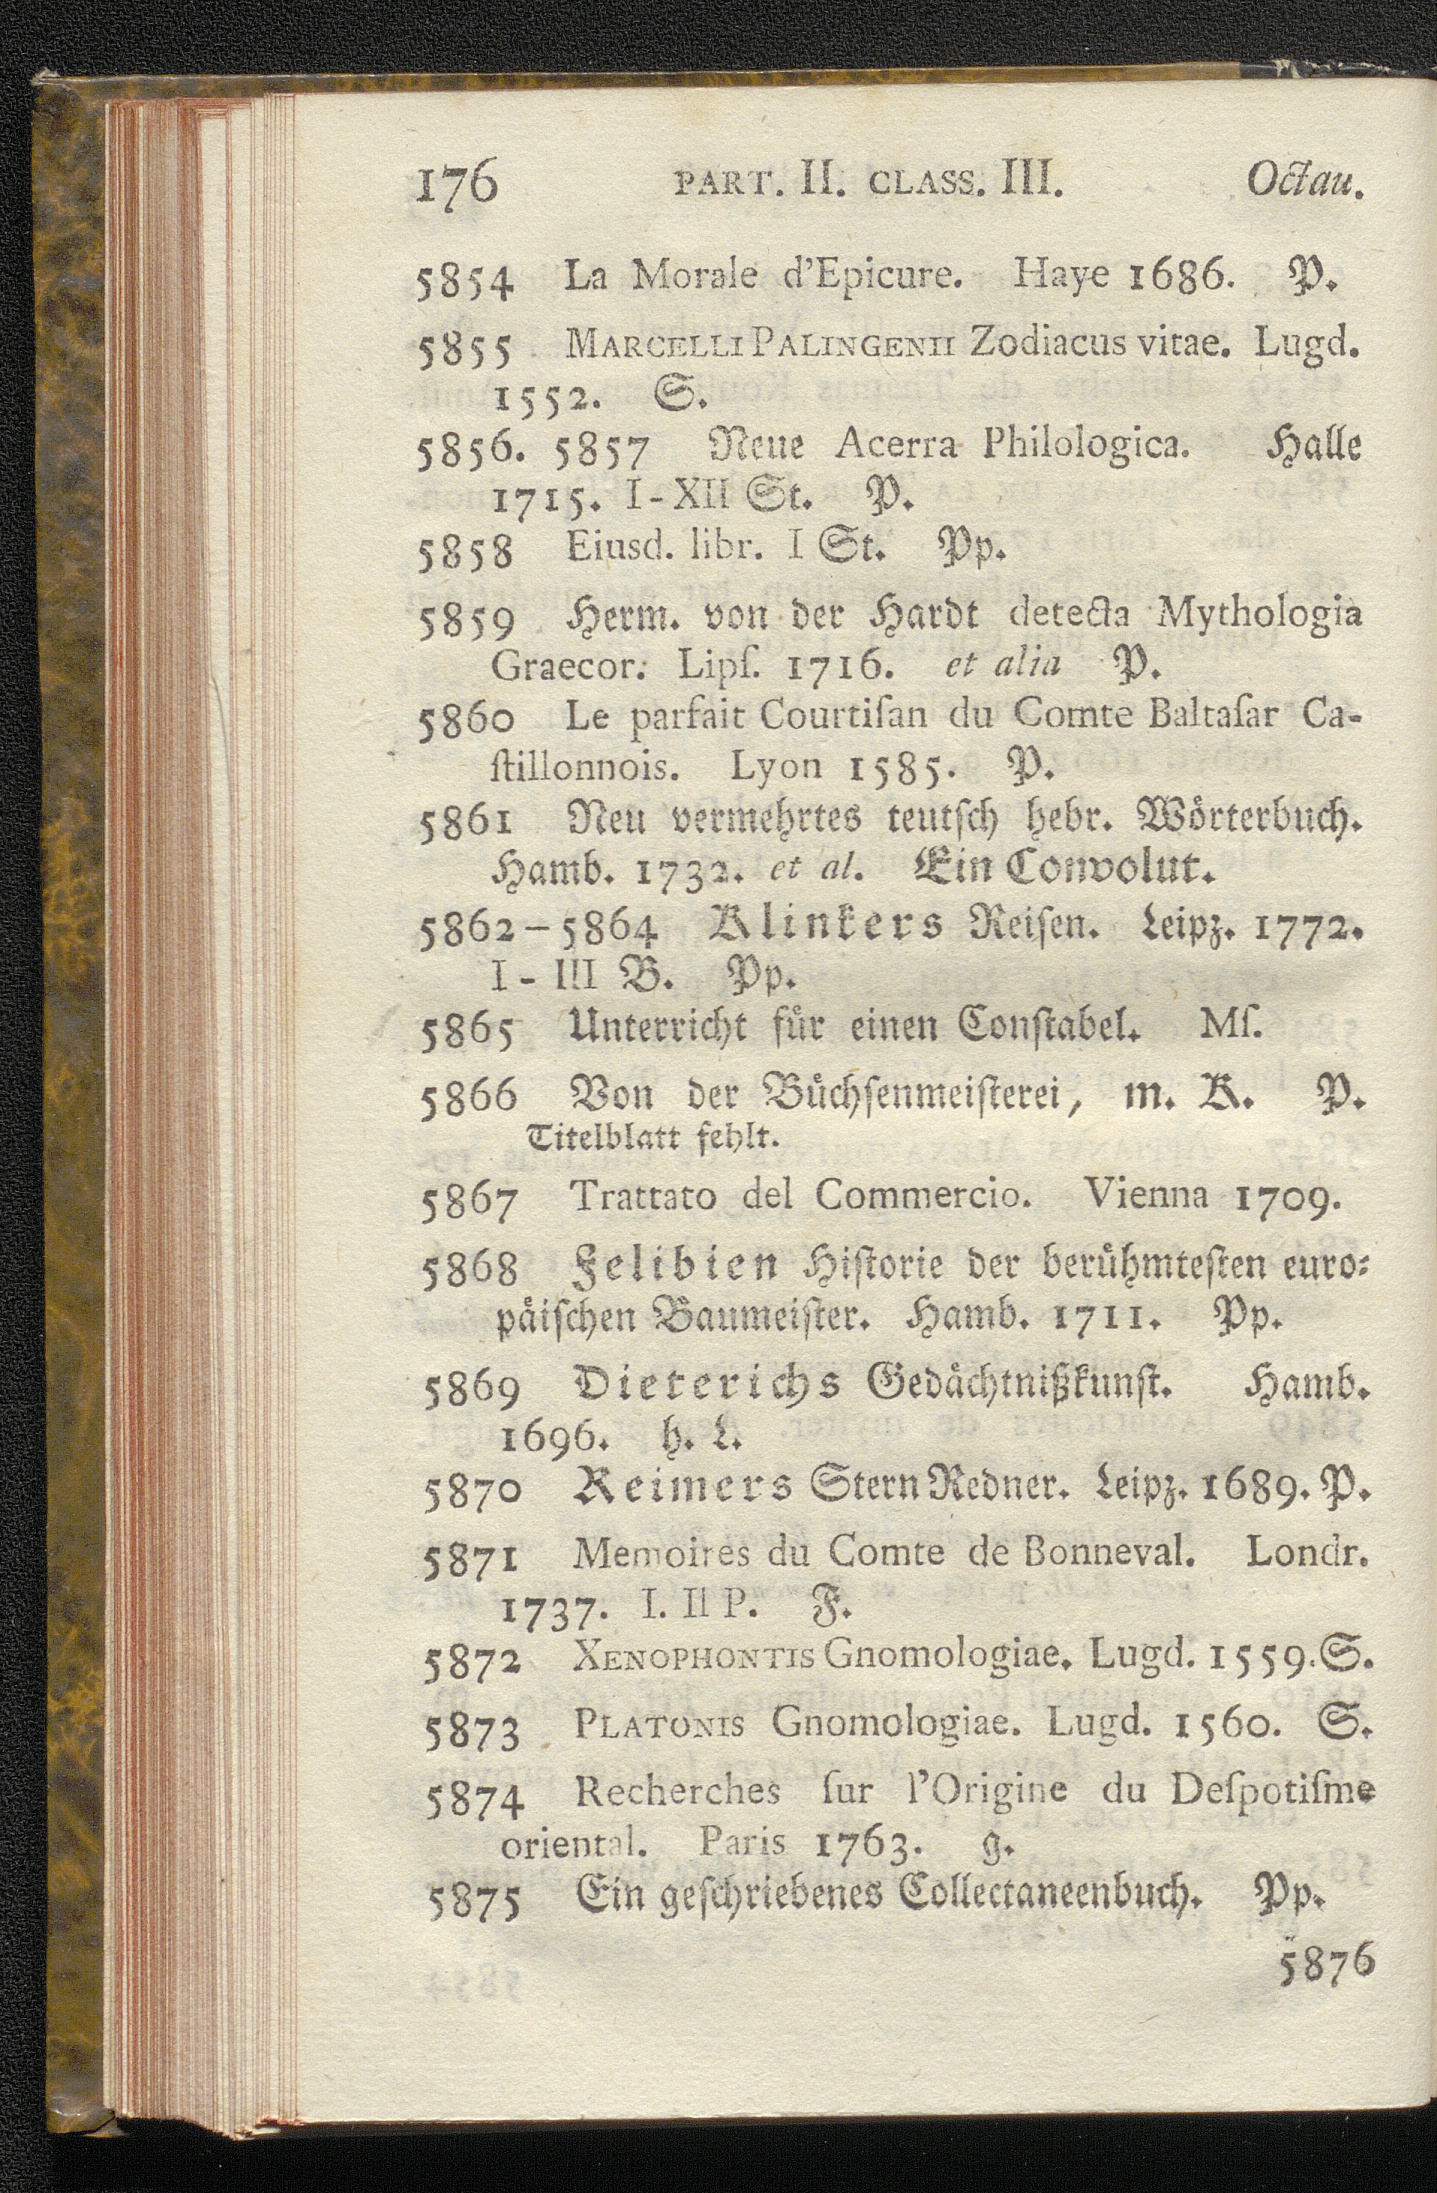 176 PART. II. CLASS. III. Octau.
5854 La Morale d'Epicure. Haye 1686. P.
5855 MARCELLI PALINGENII Zodiacus vitae. Lugd.
1552. S.
5856. 5857 Neue Acerra Philologica. Halle
1715. I-XII St. P.
5858 Eiusd. libr. I St. Pp.
5859 Herm. von der Hardt detecta Mythologia
Graecor. Lipſ. 1716. et alia P.
5860 Le parfait Courtiſan du Comte Baltaſar Ca-
ſtillonnois. Lyon 1585. P.
5861 Neu vermehrtes teutſch hebr. Wörterbuch.
Hamb. 1732. et al. Ein Convolut.
5862-5864 Klinkers Reiſen. Leipz. 1772.
I-III B. Pp.
5865 Unterricht für einen Conſtabel. Mſ.
5866 Von der Büchſenmeiſterei, m. K. P.
Titelblatt fehlt.
5867 Trattato del Commercio. Vienna 1709.
5868 Felibien Hiſtorie der berühmteſten euro-
päiſchen Baumeiſter. Hamb. 1711. Pp.
5869 Dieterichs Gedächtnißkunſt. Hamb.
1696. h. L.
5870 Reimers Stern Redner. Leipz. 1689. P.
5871 Memoires du Comte de Bonneval. Londr.
1737. I. II P. F.
5872 XENOPHONTIS Gnomologiae. Lugd. 1559. S.
5873 PLATONIS Gnomologiae. Lugd. 1560. S.
5874 Recherches ſur l'Origine du Deſpotiſme
oriental. Paris 1763. g.
5875 Ein geſchriebenes Collectaneenbuch. Pp.
5876